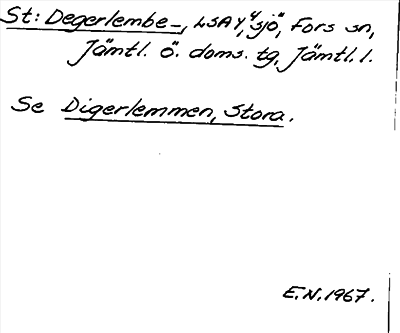 St: Degerlembe-, LSA Y, "sjö", Fors sn,
Jämtl. ö. doms. tg, Jämtl. l.
Se Digerlemmen, Stora.
E.N. 1967.